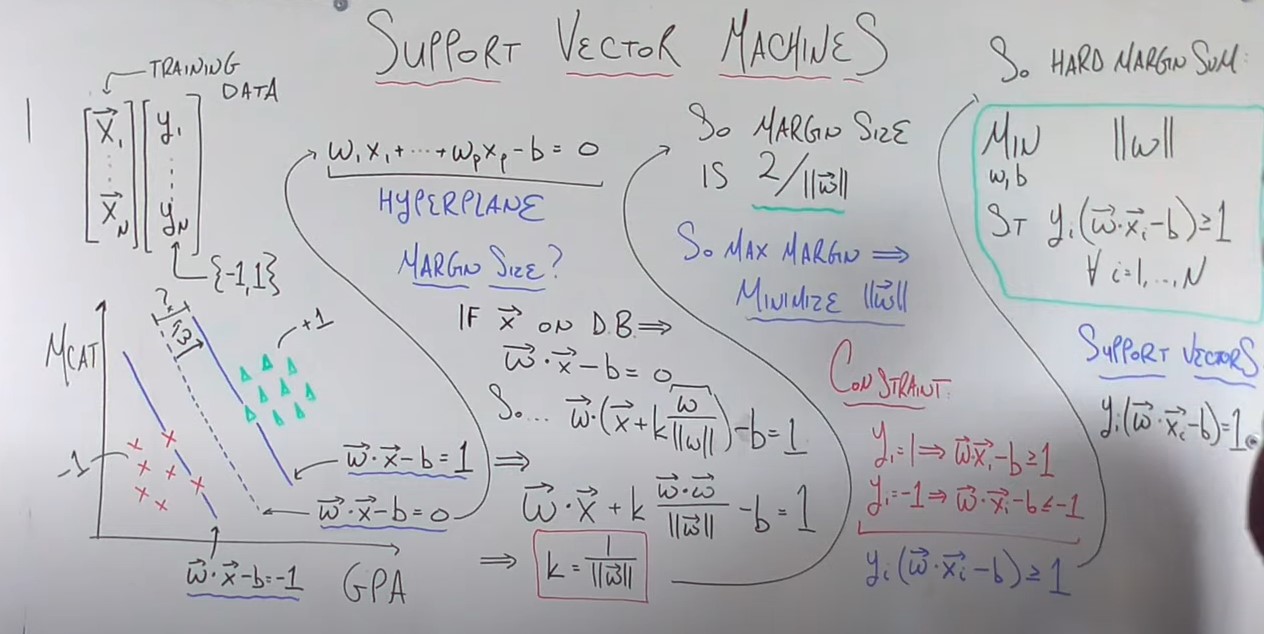 SUPPORT VECTOR MACHINES
TRAINING DATA
x⃗₁ ⋮ x⃗_N
y₁ ⋮ y_N
{-1,1}
MCAT
GPA
?
w⃗
+1
-1
w⃗·x⃗-b=1
w⃗·x⃗-b=0
w⃗·x⃗-b=-1
w₁x₁+⋯+w_px_p-b=0
HYPERPLANE
MARGIN SIZE?
IF x⃗ ON D.B. ⇒
w⃗·x⃗-b=0
SO... w⃗·(x⃗+k w/||w||)-b=1
⇒ w⃗·x⃗+k (w⃗·w⃗)/||w⃗|| -b=1
⇒ k=1/||w⃗||
SO MARGIN SIZE
IS 2/||w⃗||
SO MAX MARGIN ⇒
MINIMIZE ||w⃗||
CONSTRAINT:
yᵢ=1⇒ w⃗·x⃗ᵢ-b≥1
yᵢ=-1⇒ w⃗·x⃗ᵢ-b≤-1
yᵢ(w⃗·x⃗ᵢ-b)≥1
SO HARD MARGIN SVM:
MIN ||w||
w,b
ST yᵢ(w⃗·x⃗ᵢ-b)≥1
∀ i=1,...,N
SUPPORT VECTORS
yᵢ(w⃗·x⃗ᵢ-b)=1